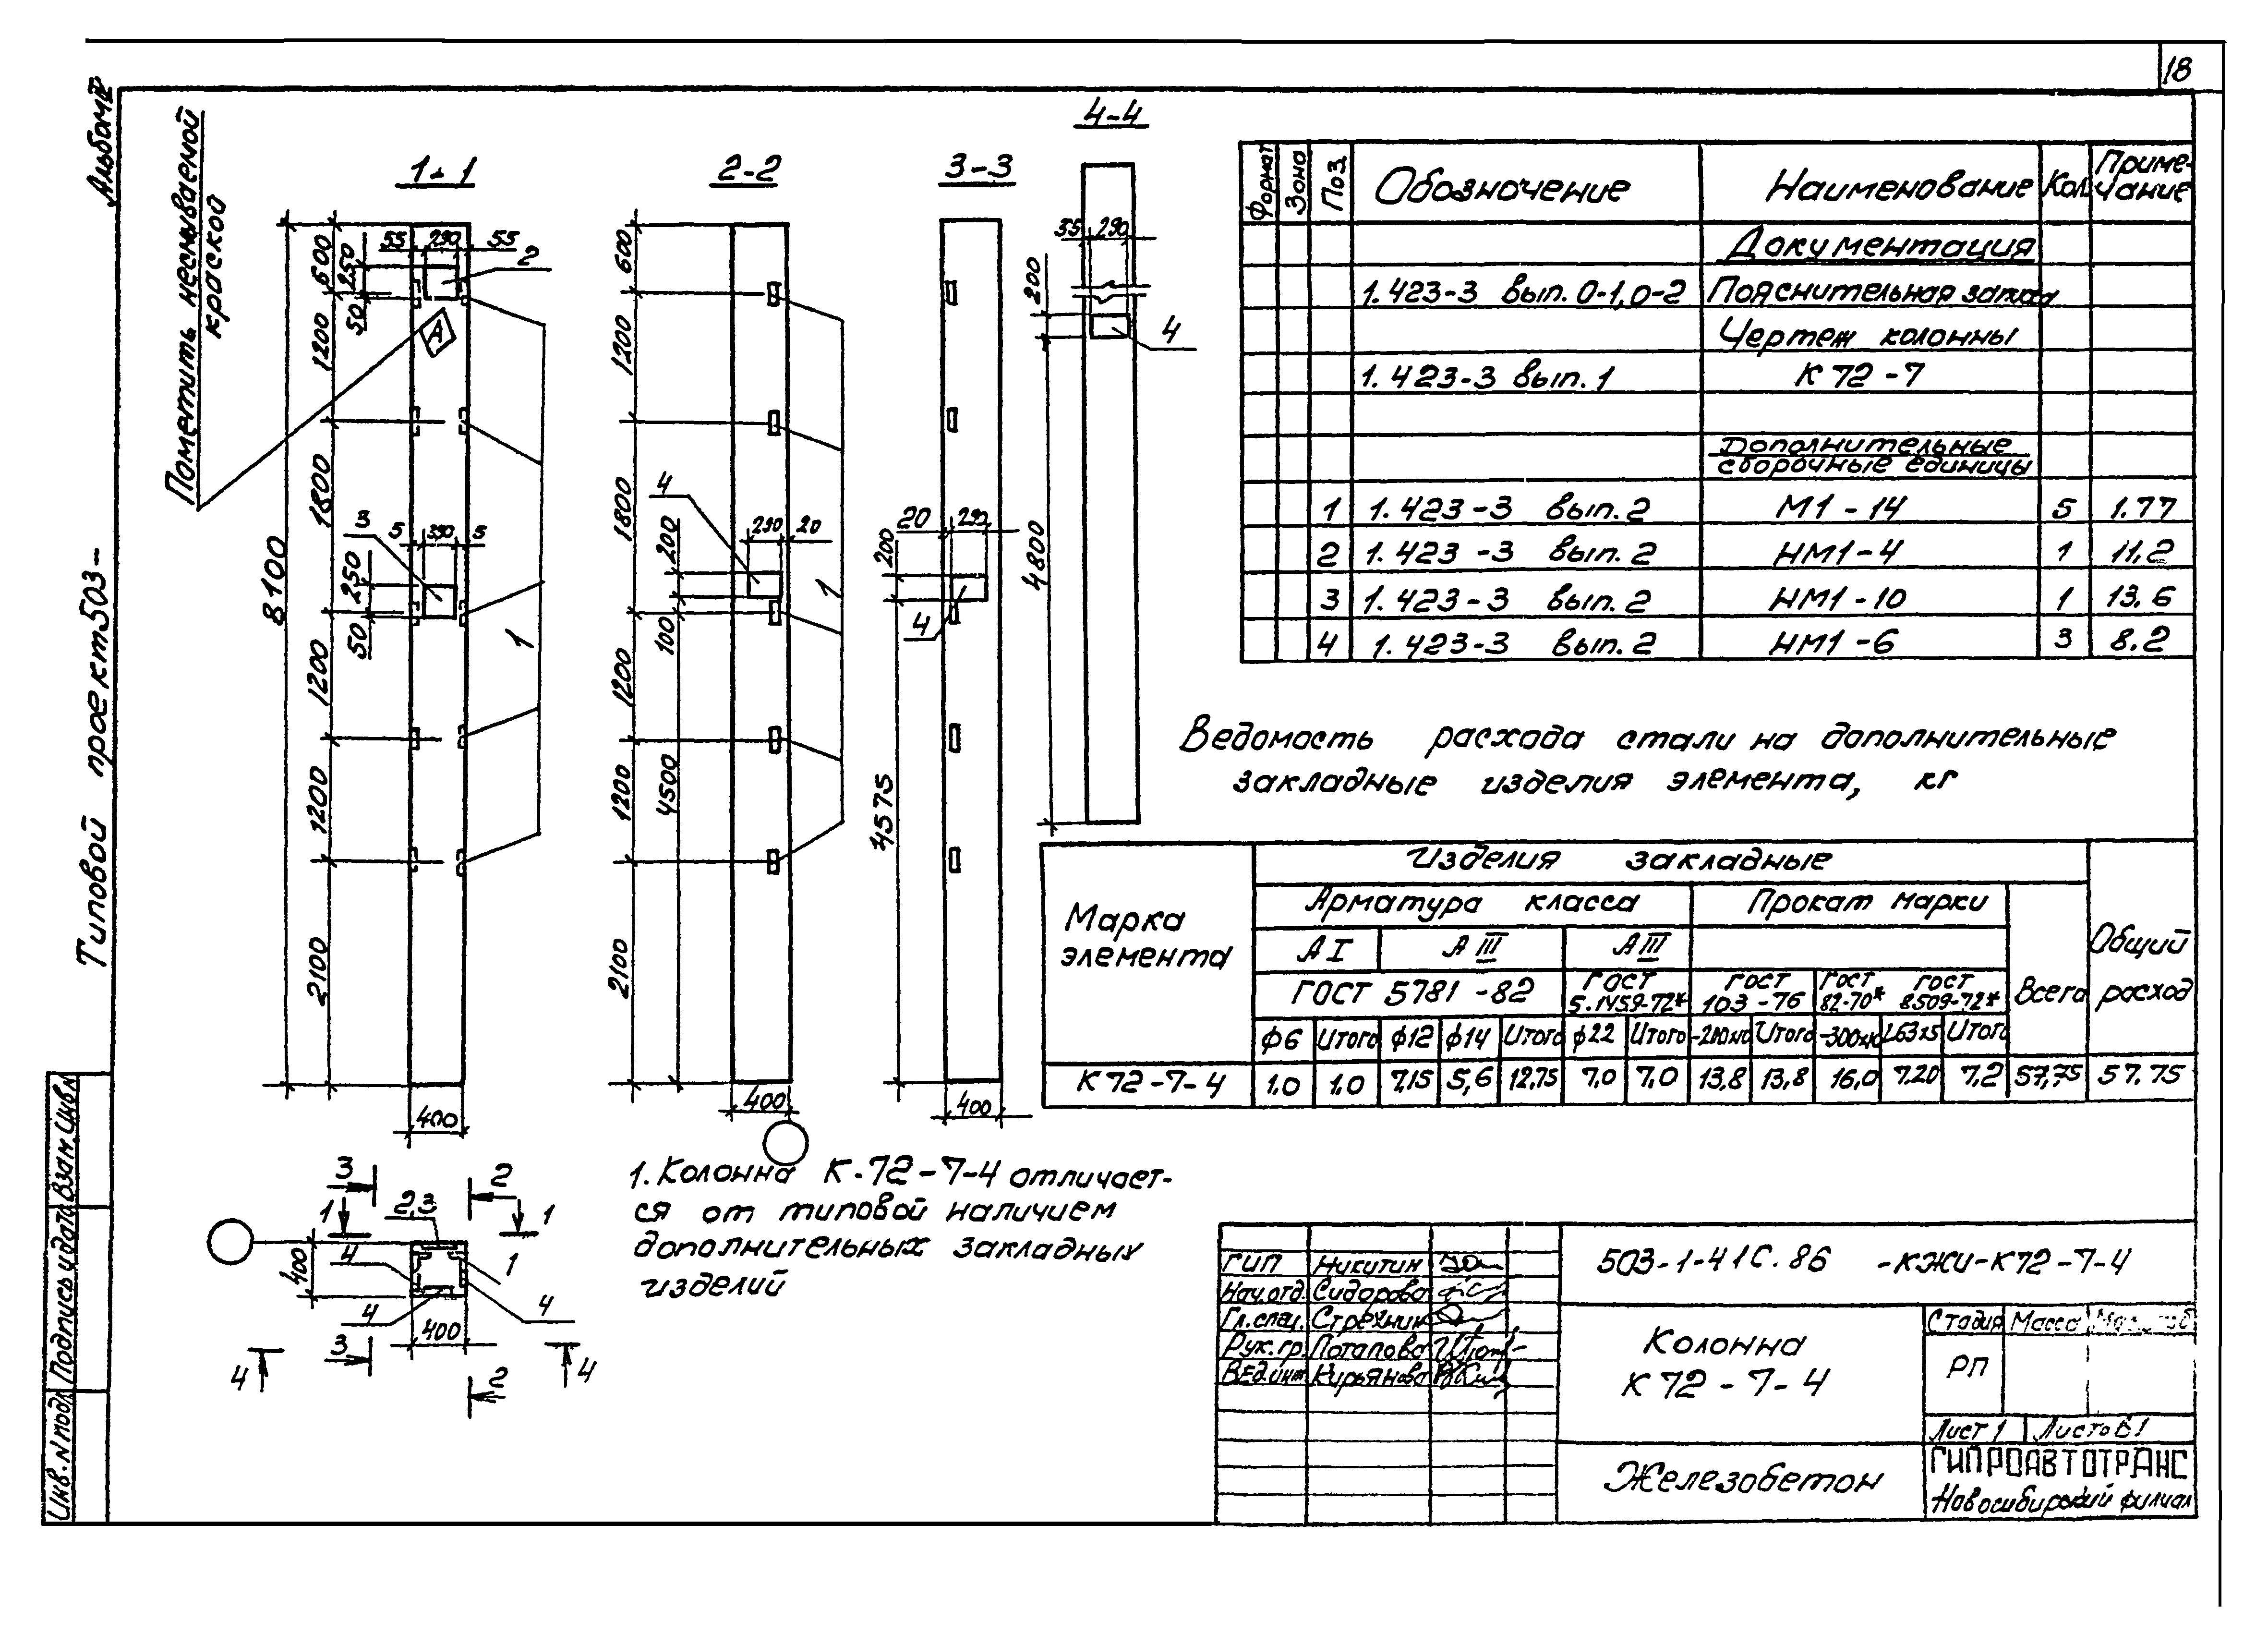 18
Альбом II
Типовой проект 503-
Пометить несмываемой
краской
1-1
2-2
3-3
4-4
55 290 55
600
250
50
2
А
1200
1800
8100
3
5 390 5
250
50
1
1200
1200
2100
400
600
1200
1800
4
200
290 20
1
100
1200
4500
1200
2100
400
20 290
200
4
4575
400
35 290
200
4
4800
3 2
1 1
2,3
4
1
400
4
4
400
3
4 4
2
1. Колонна К-72-7-4 отличает-
ся от типовой наличием
дополнительных закладных
изделий
Формат Зона Поз. Обозначение Наименование Кол. Приме-
чание
Документация
1.423-3 вып. 0-1,0-2 Пояснительная записка
Чертеж колонны
1.423-3 вып.1 К 72-7
Дополнительные
сборочные единицы
1 1.423-3 вып.2 М1-14 5 1.77
2 1.423-3 вып.2 НМ1-4 1 11.2
3 1.423-3 вып.2 НМ1-10 1 13.6
4 1.423-3 вып.2 НМ1-6 3 8.2
Ведомость расхода стали на дополнительные
закладные изделия элемента, кг
Марка
элемента
Изделия закладные
Общий
расход
Арматура класса Прокат марки
Всего
А I А III А III
ГОСТ 5781-82
ГОСТ
5.1459-72*
ГОСТ
103-76
ГОСТ
82-70*
ГОСТ
8509-72*
ф6 Итого ф12 ф14 Итого ф22 Итого Итого L63х5 Итого
К 72-7-4 1,0 1,0 7,15 5,6 12,75 7,0 7,0 13,8 13,8 16,0 7.20 7,2 57,75 57.75
503-1-41С.86 -КЖИ-К72-7-4
ГИП Никитин
Нач.отд. Сидорова
Гл.спец. Стрехнин
Рук.гр. Потапова
Вед.инж. Кирьянова
Колонна
К 72-7-4
Стадия Масса Масштаб
РП
Лист 1 Листов 1
Железобетон
ГИПРОАВТОТРАНС
Новосибирский филиал
Инв. N подл. Подпись и дата Взам. инв. N